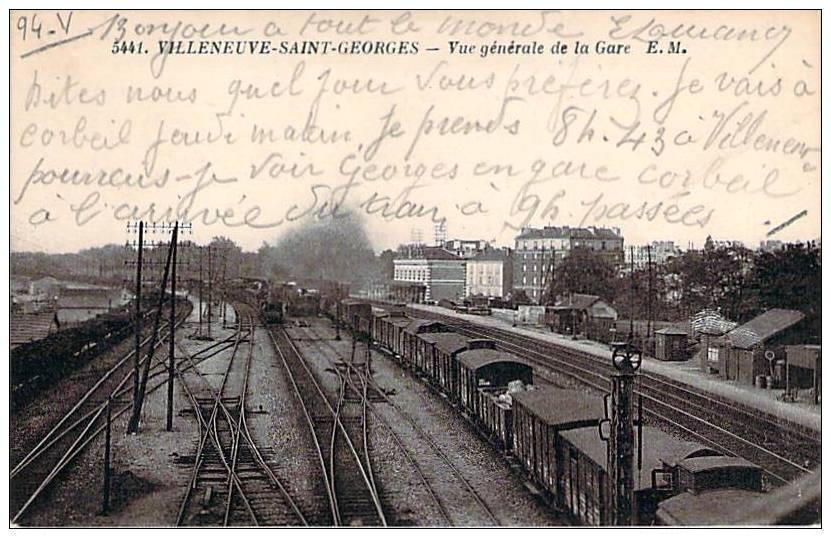 94.V Bonjour a tout le monde
5441. VILLENEUVE-SAINT-GEORGES — Vue générale de la Gare E. M.
Dites nous quel jour vous préférez. Je vais à
corbeil jeudi matin, je prends 8h.43 à Villeneuve
pourrais-je voir Georges en gare corbeil
à l'arrivée du train à 9h passées